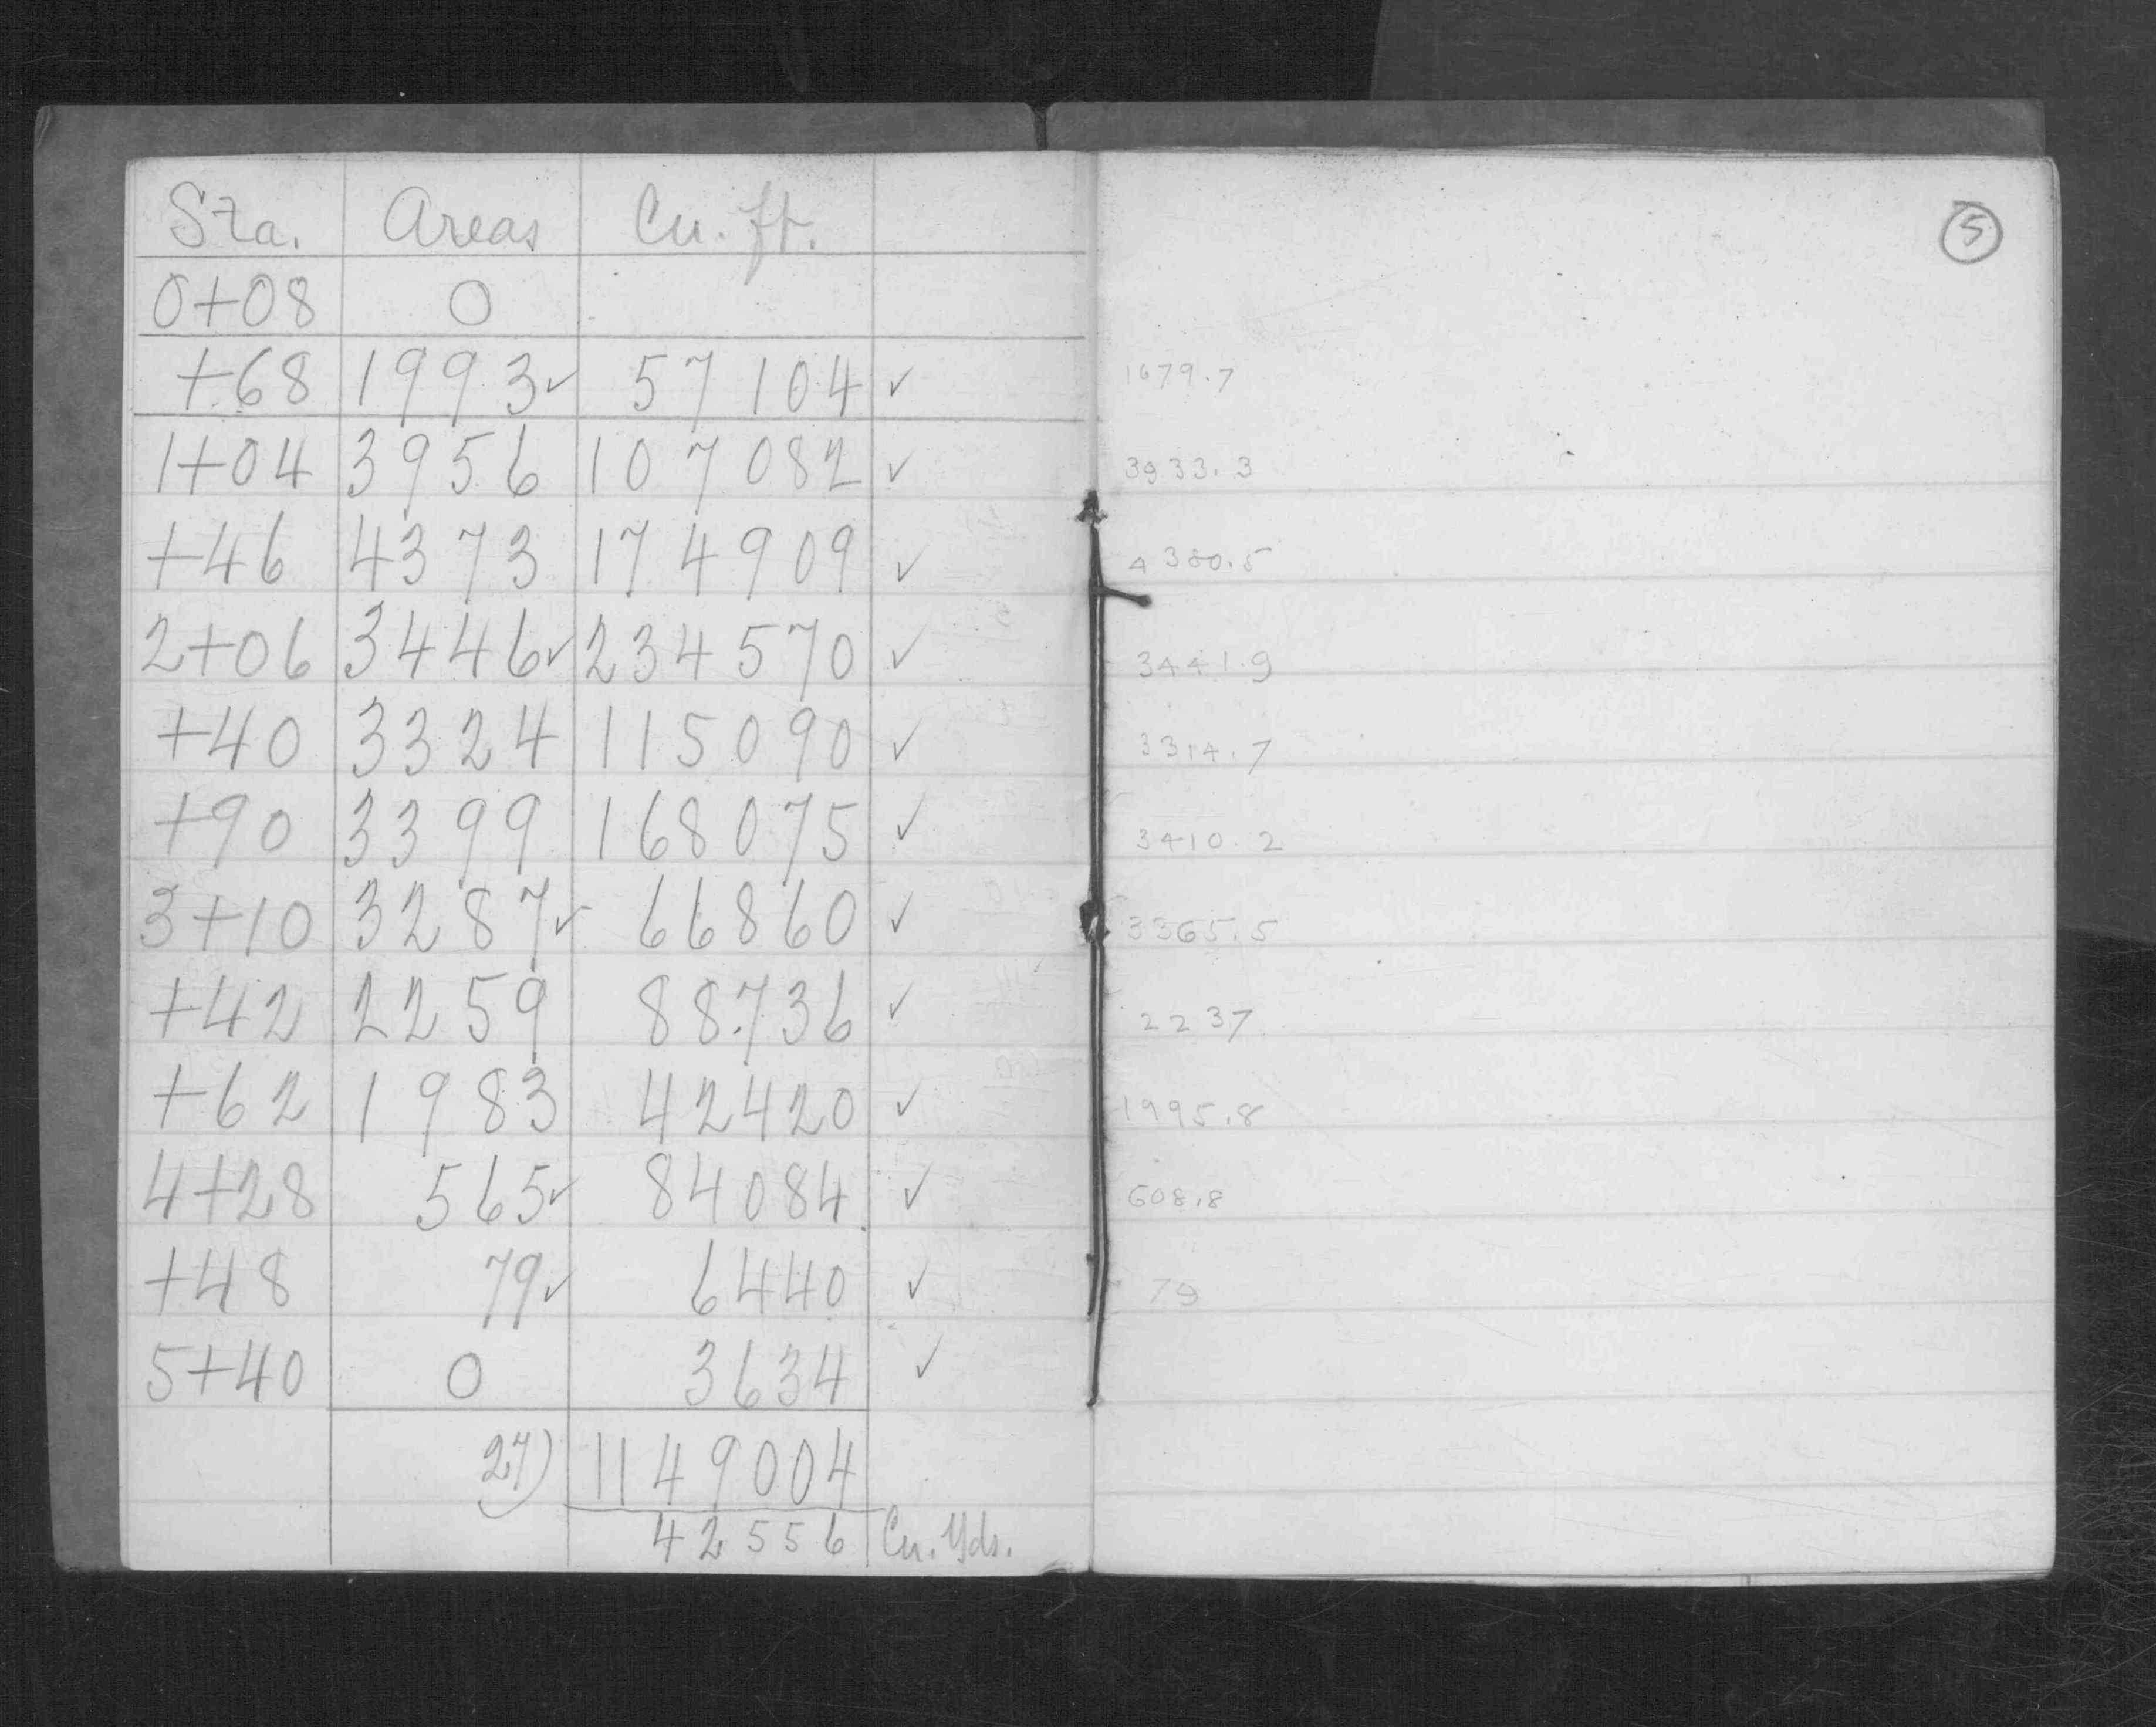 Sta. Areas Cu. ft.
0+08 0
+68 1993✓ 57104 ✓
1+04 3956 107082 ✓
+46 4373 174909 ✓
2+06 3446✓ 234570 ✓
+40 3324 115090 ✓
+90 3399 168075 ✓
3+10 3287✓ 66860 ✓
+42 2259 88736 ✓
+62 1983 42420 ✓
4+28 565✓ 84084 ✓
+48 79✓ 6440 ✓
5+40 0 3634 ✓
27) 1149004
42556 Cu. Yds.
5
1679.7
3933.3
4380.5
3441.9
3314.7
3410.2
3365.5
2237
1995.8
608.8
79